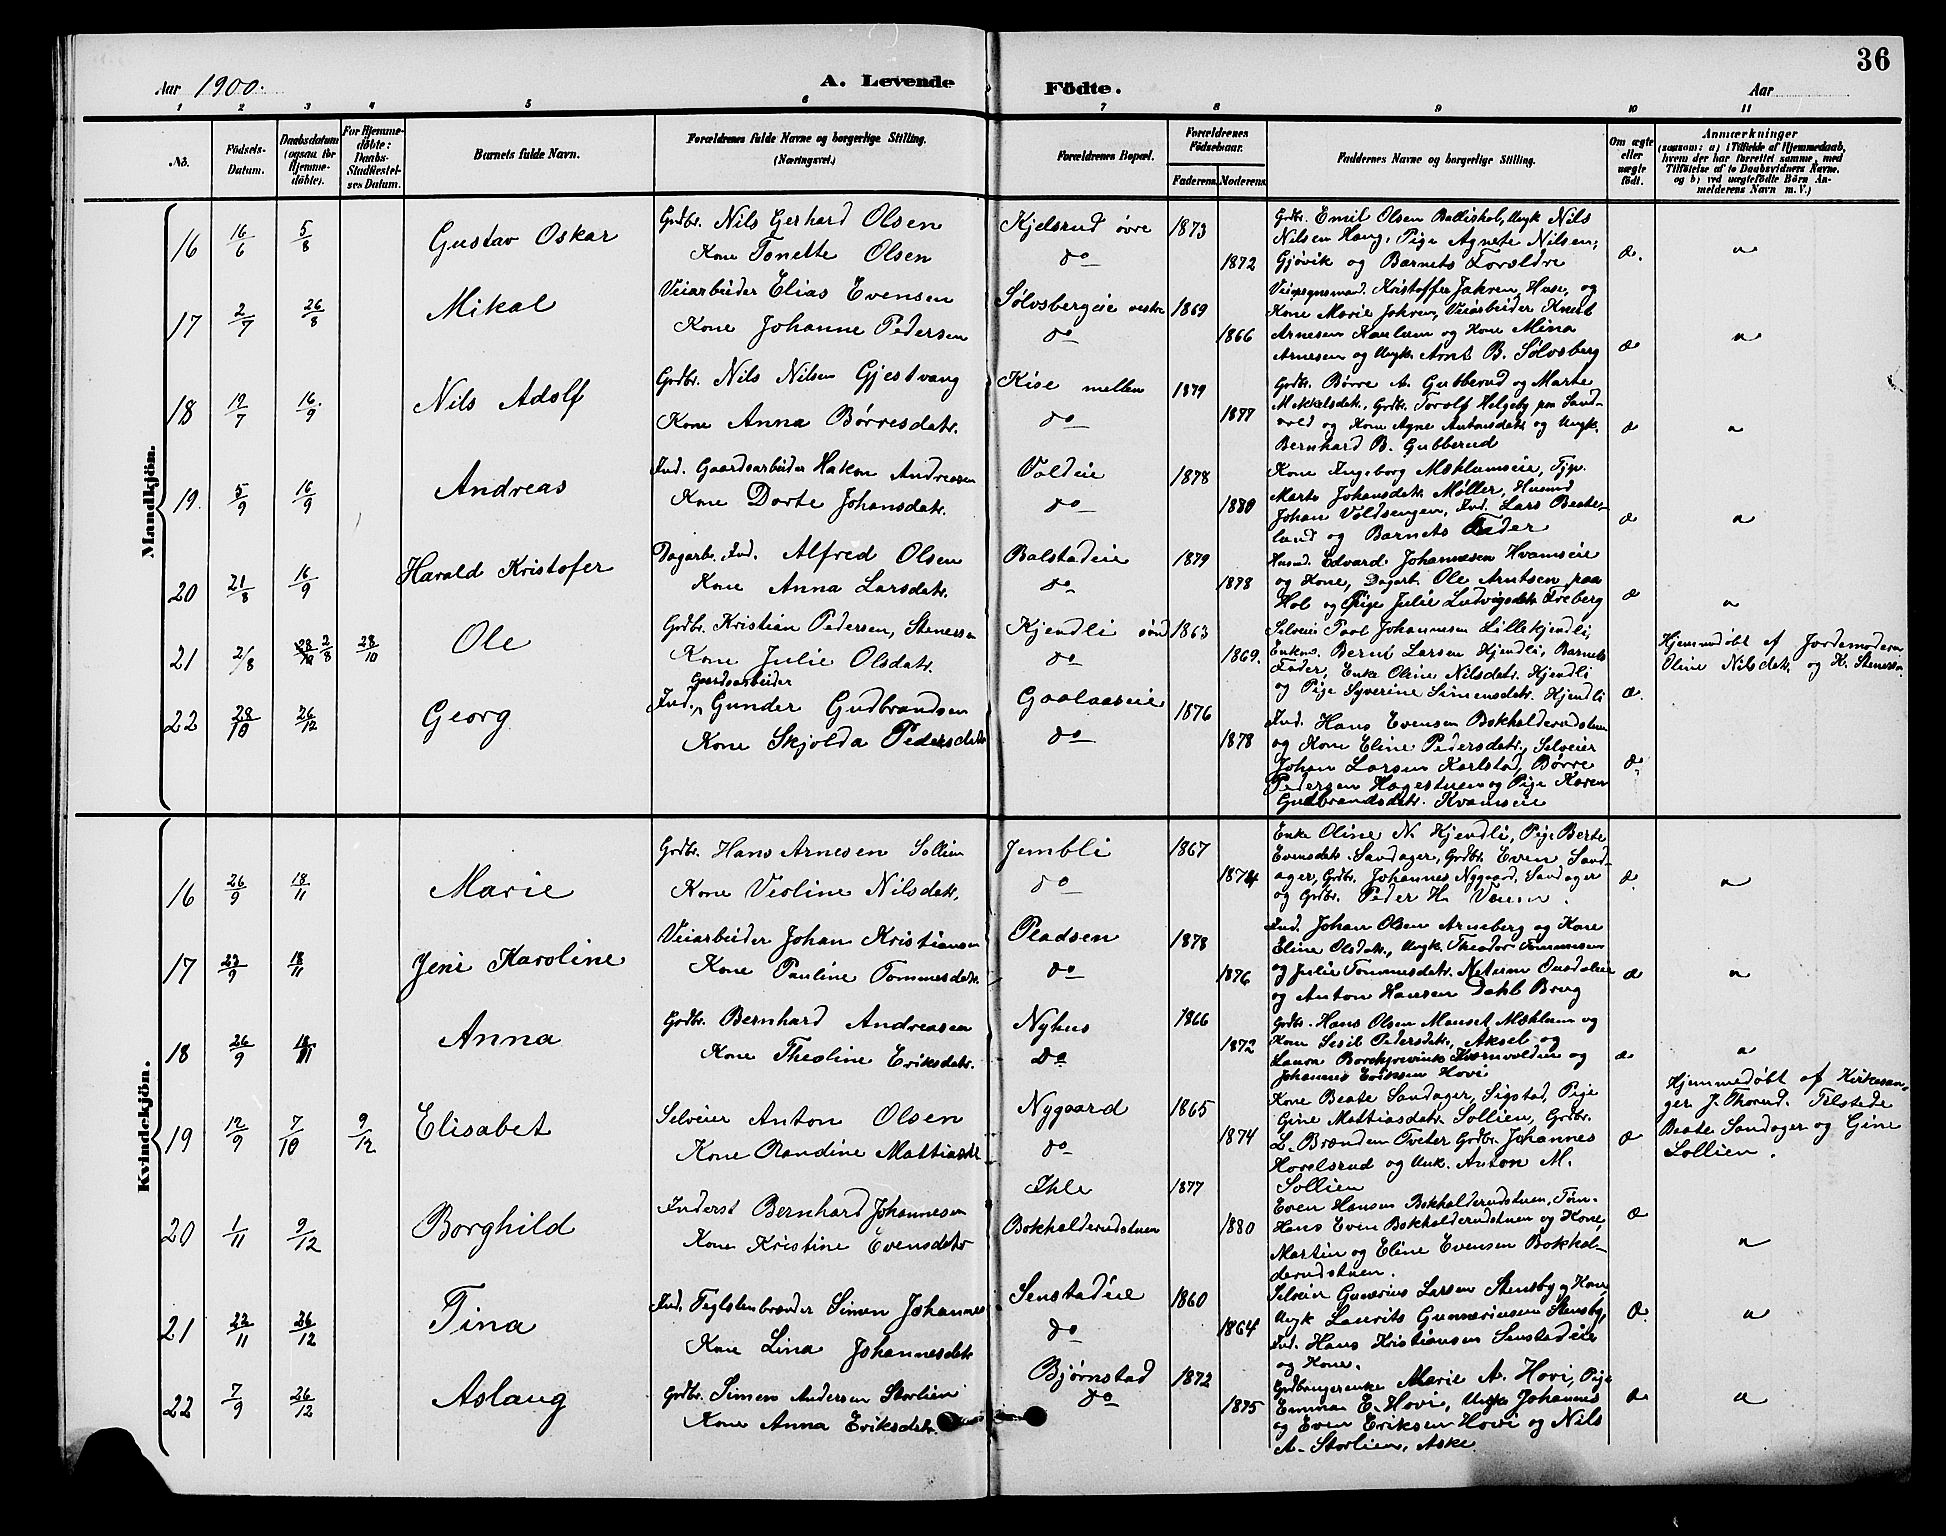 36
Aar 1900. A. Levende Födte. Aar
1 2 3 4 5 6 7 8 9 10 11
No. Födsels-Datum. Daabsdatum (ogsaa for Hjemme-döbte). For Hjemme-döbte: Daabs-Stadfæstel-ses Datum. Barnets fulde Navn. Forældrenes fulde Navne og borgerlige Stilling. (Næringsvei.) Forældrenes Bopæl. Forældrenes Födselsaar. Faderens. Moderens. Faddernes Navne og borgerlige Stilling. Om ægte eller uægte födt. Anmærkninger (saasom: a) i Tilfælde af Hjemmedaab, hvem der har forrettet samme, med Tilföielse af to Daabsvidners Navne, og b) ved uægtefödte Börn An-melderens Navn m. V.)
Mandkjön.
16 16/6 5/8 Gustav Oskar Grdbr. Nils Gerhard Olsen Kjelsrud øvre 1873 Grdbr. Emil Olsen Balliskol, Ungk Nils
Kone Tonette Olsen do 1872 Nilsen Haug, Pige Agnete Nilsen,
Gjøvik og Barnets Forældre æ. "
17 2/7 26/8 Mikal Veiarbeider Elias Evensen Sølvsbergeie vestre 1869 Kristoffer Jahren, Hase, og
Kone Johanne Pedersen do 1866 Kone Marie Jahren, Veiarbeider Knut
Arnesen Haulum og Kone Mina
Arnesen og Ungk. Arnt B. Sølvsberg æ "
18 19/7 16/9 Nils Adolf Grdbr. Nils Nilsen Gjestvang Kise mellem 1879 Grdbr. Børre A. Gubberud og Marte
Kone Anna Børresdatr. do 1877 Mikkelsdatr., Grdbr. Torolf Helgeby paa Sand-
vold og Kone Agne Antonsdatr og Ungk.
Bernhard B. Gubberud æ "
19. 5/9 16/9 Andreas Ind. Gaardsarbeider Hakon Andreasen Voldeie 1878 Kone Ingeborg Mæhlumseie, Tjp.
Kone Dorte Johansdatr. do 1880 Marte Johansdatr. Møller, Husmd
Johan Voldsengen, Ind. Lars Beate-
land og Barnets Fader æ "
20 21/8 16/9 Harald Kristofer Dagarb. Ind. Alfred Olsen Balstadeie 1879 Husmd. Edvard Johannesen Hvamseie
Kone Anna Larsdatr. do 1878 og Kone, Dagarb. Ole Arntsen paa
Hol og Pige Julie Ludvigsdatr. Freberg æ "
21 2/8 28/10 2/8 28/10 Ole Grdbr. Kristian Pedersen, Stenersen Kjendli sønd 1863 Selveier Paol Johannesen Lillekjendli,
Kone Julie Olsdatr. do 1869. Enkm. Bernt Larsen Hjendli, Barnets
Fader, Enke Oline Nilsdatr. Hjendli
og Pige Syverine Simensdatr. Hjendli æ Hjemmedøbt af Jordemoderen
Oline Nilsdatr. og K. Stenersen.
22 28/10 26/12 Georg Ind. Gaardsarbeider Gunder Gudbrandsen Gaalaaseie 1876 Ind. Hans Evensen Bokholderudstuen
Kone Skjolda Pedersdatr do 1878 og Kone Eline Pedersdatr., Selveier
Johan Larsen Karlstad, Børre
Pedersen Hagestuen og Pige Karen
Gudbrandsdatr. Kvamseie æ
Kvindekjön.
16 26/9 18/11 Marie Grdbr. Hans Arnesen Sollien Jembli 1867 Enke Oline N. Hjendli, Pige Berte
Kone Violine Nilsdatr. do 1874 Evensdatr. Sandager, Grdbr. Even Sand-
ager, Grdbr. Johannes Nygaard, Sandager
og Grdbr. Peder H. æ "
17 23/9 18/11 Jeni Karoline Veiarbeider Johan Kristiansen Pladsen 1878 Ind. Johan Olsen Arneberg og Kone
Kone Pauline Tommesdatr. do 1876 Eline Olsdatr., Ungk. Theodor Tommesen
og Julie Tommesdatr.
og Anton Hansen Dahl Brug æ "
18 26/9 18/11 Anna Grdbr. Bernhard Andreasen Nyhus 1866 Grdbr. Hans Olsen Manset, Mæhlum og
Kone Theoline Eriksdatr. do 1872 Kone Sesil Pedersdatr., Aksel og
Laura og
Johannes Eriksen Hovi æ "
19 12/9 7/10 9/12 Elisabet Selveier Anton Olsen Nygaard 1865 Kone Beate Sandager, Sigstad, Pige
Kone Randine Mattiasdtr do 1874 Gine Mattiasdatr. Sollien, Grdbr.
L. Brænden Oveter Grdbr. Johannes
Hovelsrud og Unk. Anton M.
Sollien æ Hjemmedøbt af Kirkesan-
ger J. Thorud. Tilstede
Beate Sandager og Gine
Sollien.
20 1/11 9/12 Borghild Inderst Bernhard Johannesen Ihle 1877 Even Hansen Bokholderudstuen, Tøm-
Kone Kristine Evensdatr Bokholderudstuen 1880 Hans Even Bokholderudstuen og Kone,
Martin og Eline Evensen Bokhol-
derudstuen. æ "
21 22/11 26/12 Tina Ind. Teglstenbrænder Simen Johannes Senstadeie 1860 Selveier Gunerius Larsen Stensby og Kone,
Kone Lina Johannesdatr do 1864 Ungk Laurits Gunneriusen Stensby,
Ind. Hans Kristiansen Senstadeie
og Kone. æ. "
22 7/9 26/12 Aslaug Grdbr. Simen Andersen Storlien Bjørnstad 1872 Grdbrugerenke Marie A. Hovi, Pige
Kone Anna Eriksdatr. do 1875 Emma E. Hovi, Ungk Johannes
og Even Eriksen Hovi og Nils
A. Storlien, Aske æ "